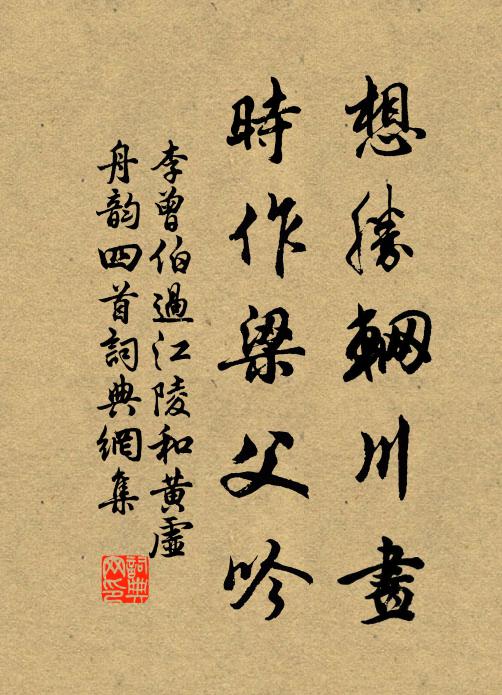 想勝輞川畫
時作梁父吟
李曾伯過江陵和黃虛
舟韵四首詞典網集
詞典
网印